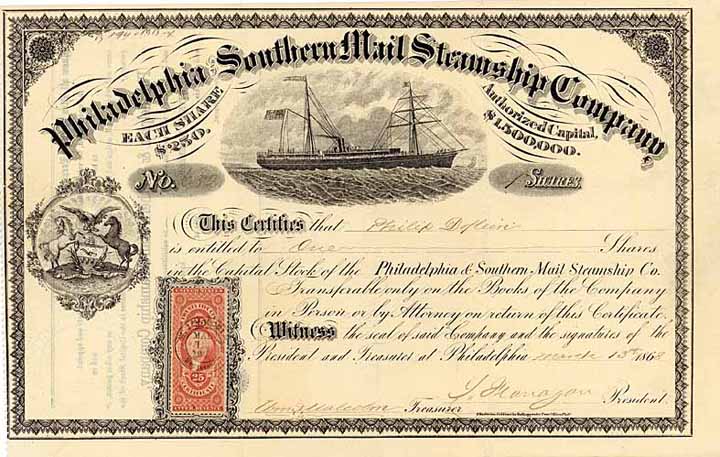 Philadelphia and Southern Mail Steamship Company,
EACH SHARE
$250.
Authorized Capital,
$1,500,000.
No.
1 SHARES
This Certifies that Philip
is entitled to One Shares
in the Capital Stock of the Philadelphia & Southern Mail Steamship Co.
Transferable only on the Books of the Company
in Person or by Attorney on return of this Certificate.
Witness the seal of said Company and the signatures of the
President and Treasurer at Philadelphia March 13th 1868
President.
Treasurer
25
CERTIFICATE